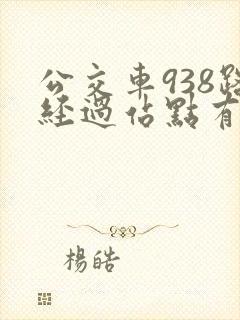 公交車938路
經過佔點有
楊皓